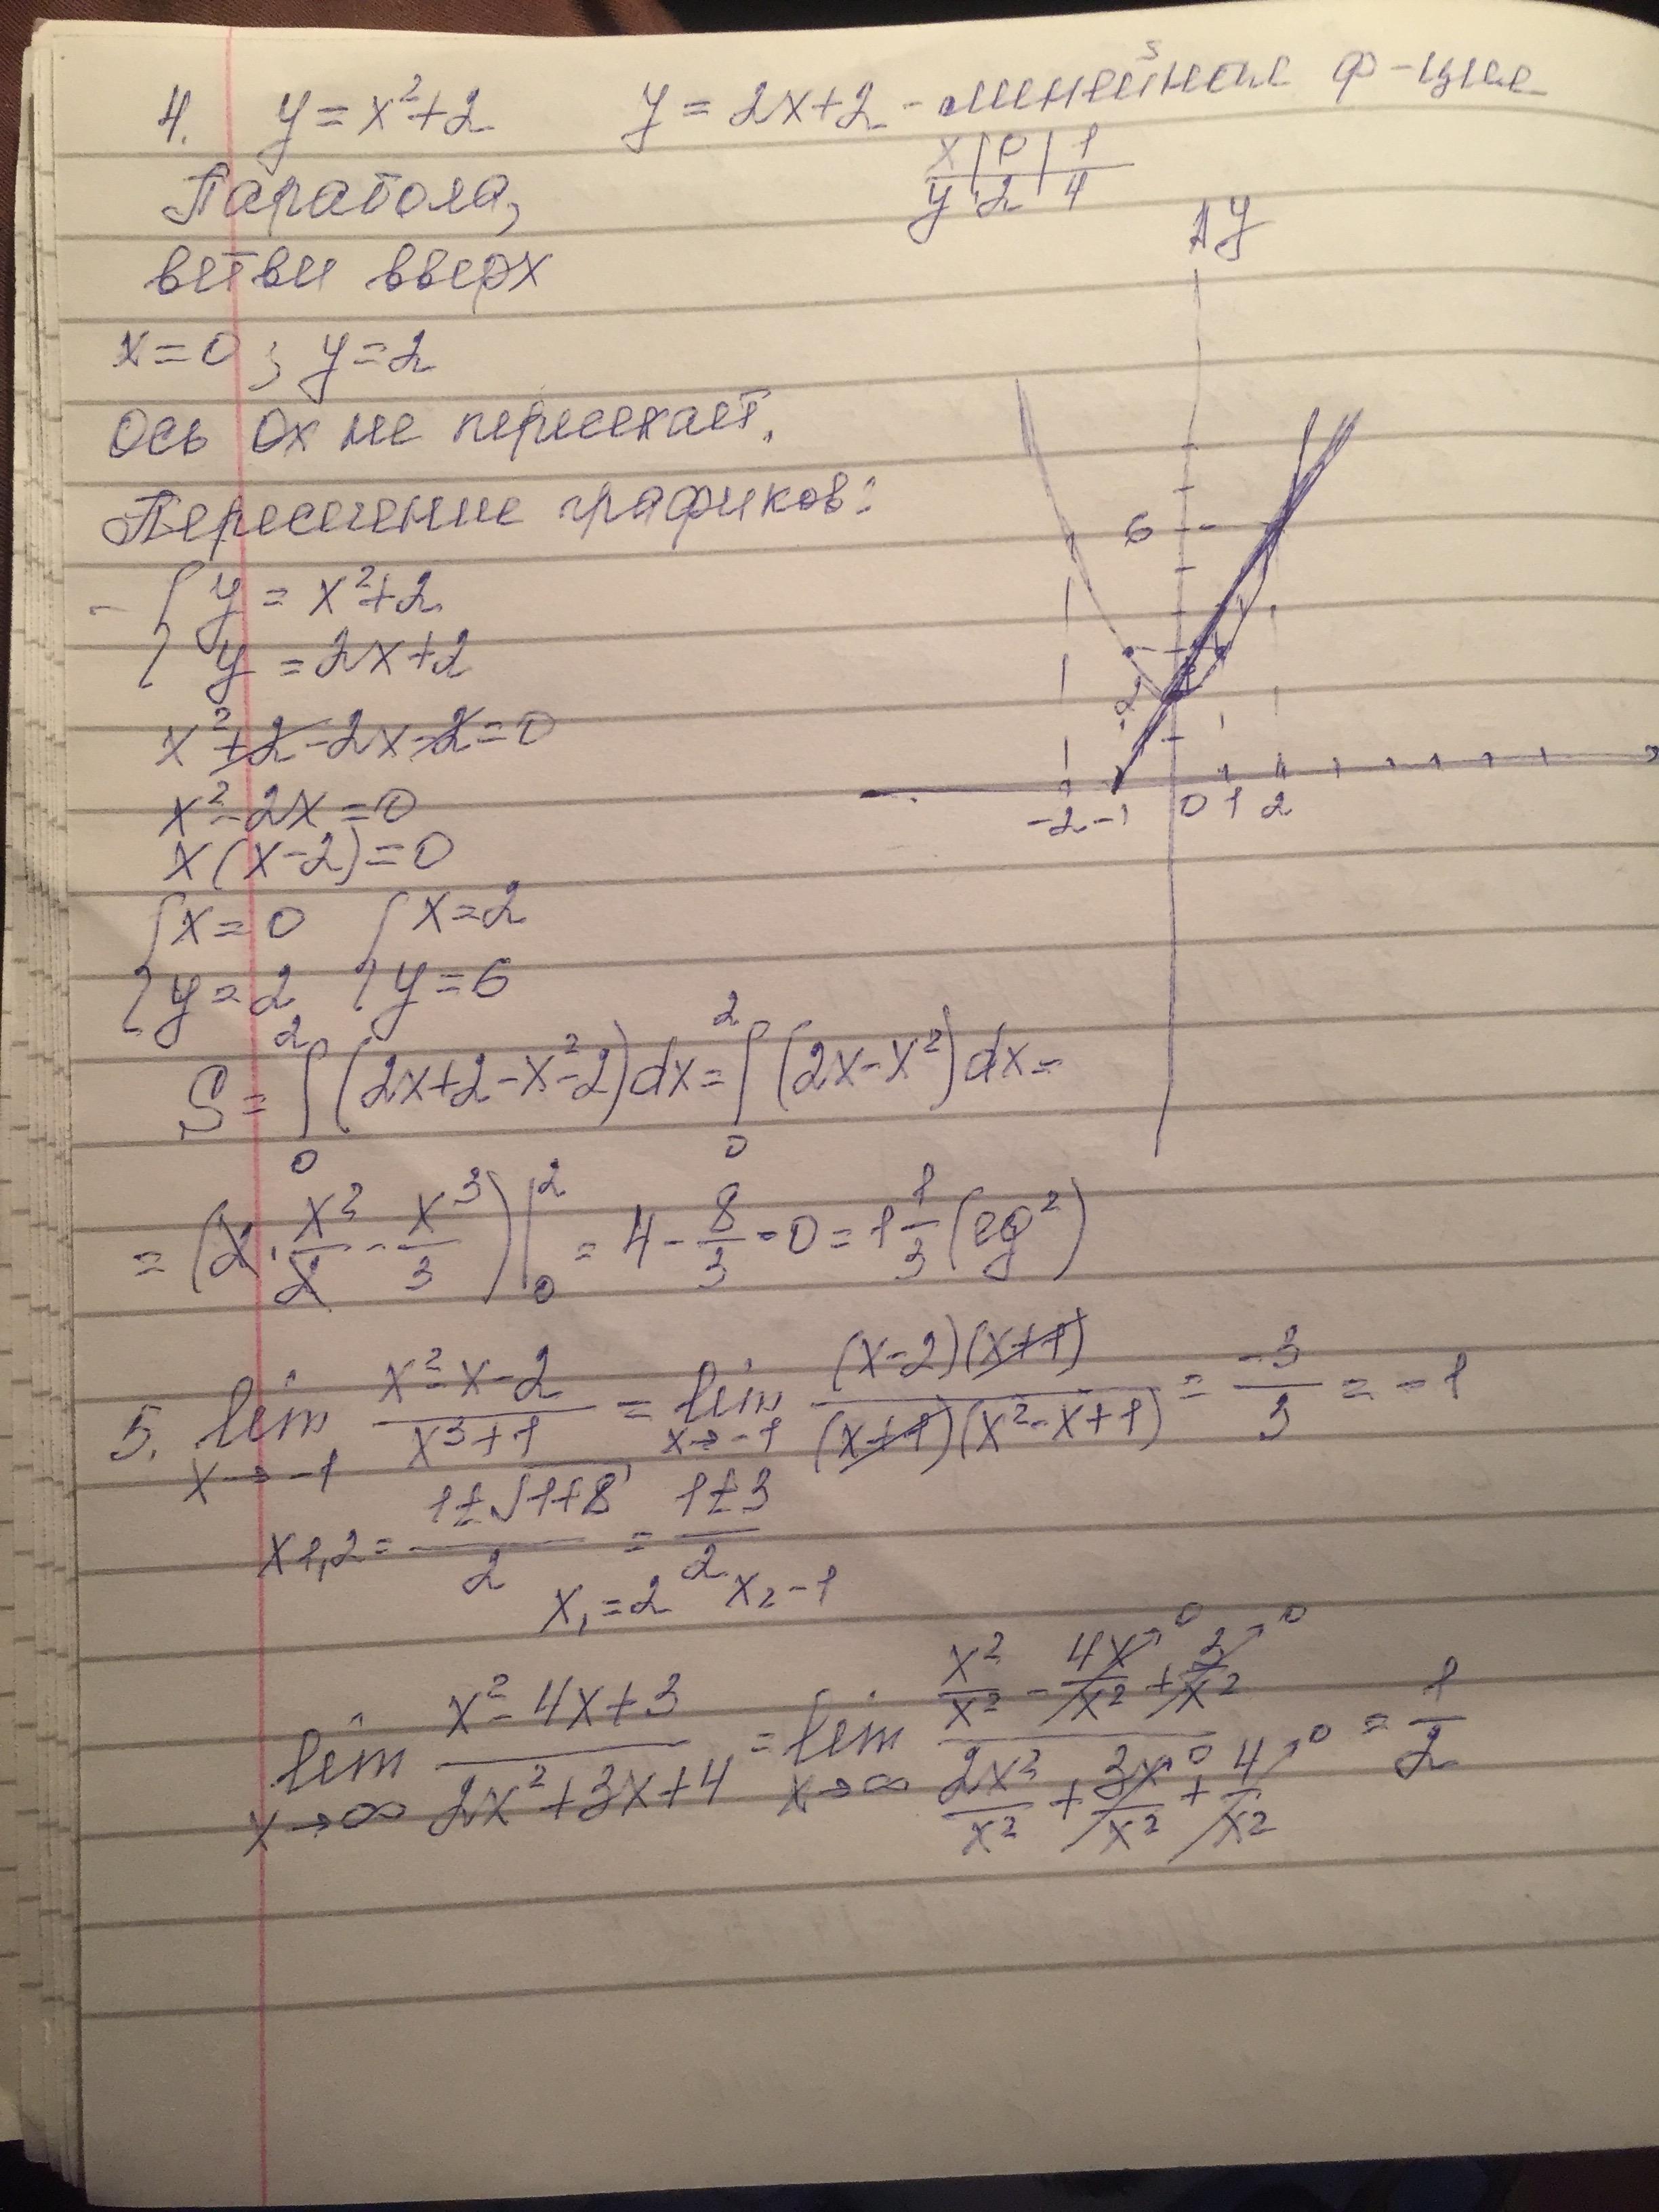 4. y = x²+2 y = 2x+2 - линейная ф-ция
x | 0 | 1
y | 2 | 4
Парабола,
ветви вверх
x=0; y=2
Ось Ох не пересекает.
Пересечение графиков:
- { y = x²+2
{ y = 2x+2
x²+2-2x-2=0
x²-2x=0
x(x-2)=0
{ x=0 { x=2
{ y=2 { y=6
S = ∫₀² (2x+2-x²-2)dx = ∫₀² (2x-x²)dx =
= (2·x²/2 - x³/3)|₀² = 4 - 8/3 - 0 = 1 1/3 (ед²)
y
6
2
-2 -1 0 1 2
5. lim x→-1 (x²-x-2)/(x³+1) = lim x→-1 (x-2)(x+1)/((x+1)(x²-x+1)) = -3/3 = -1
x1,2 = (1±√1+8)/2 = (1±3)/2
x₁=2 x₂-1
lim x→∞ (x²-4x+3)/(2x²+3x+4) = lim x→∞ (x²/x² - 4x/x²→0 + 3/x²→0)/(2x²/x² + 3x/x²→0 + 4/x²→0) = 1/2